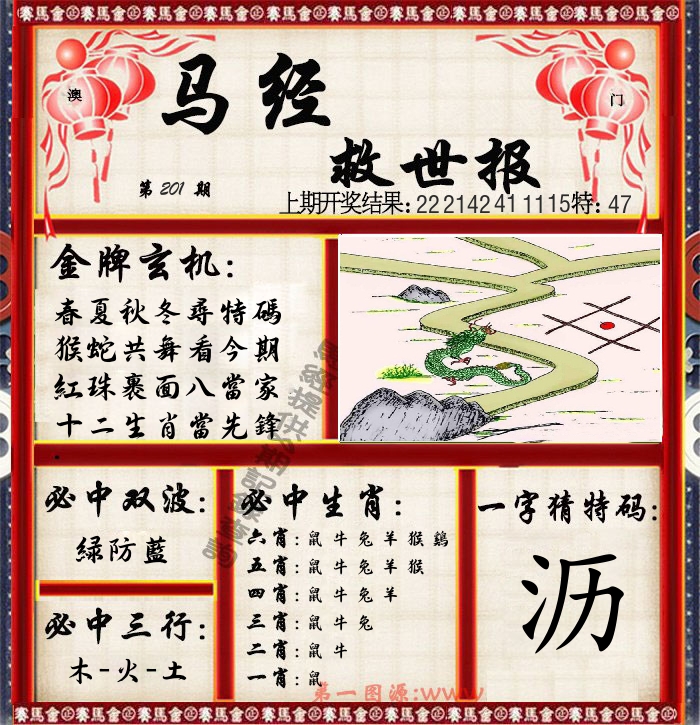 賽馬會正賽馬會正賽馬會正賽馬會正賽馬會
澳
门
马经
救世报
第 201 期
上期开奖结果: 22 21 42 41 11 15 特: 47
金牌玄机:
春夏秋冬尋特碼
猴蛇共舞看今期
紅珠裹面八當家
十二生肖當先鋒
必中双波:
緑防藍
必中三行:
木-火-土
必中生肖:
六肖: 鼠牛兔羊猴鷄
五肖: 鼠牛兔羊猴
四肖: 鼠牛兔羊
三肖: 鼠牛兔
二肖: 鼠牛
一肖: 鼠
一字猜特码:
沥
第一图源:www